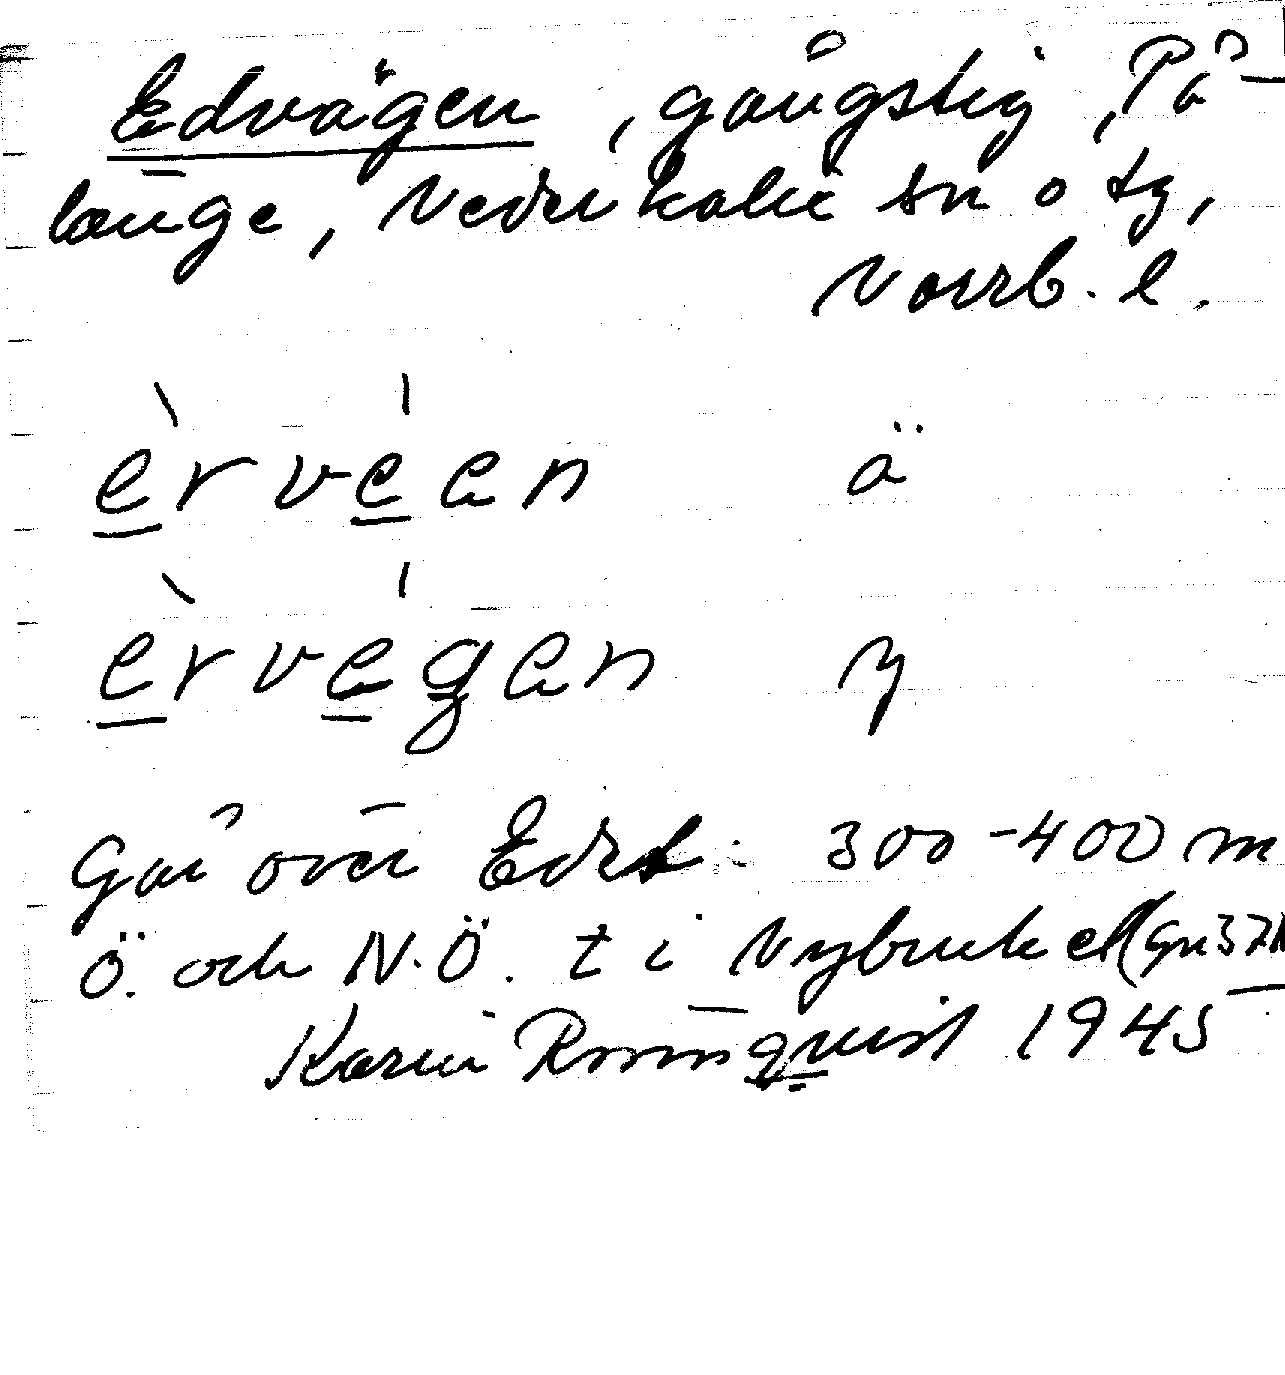 Edvägen, gångstig, På-
länge, Nederkalix sn o tg,
Norrb. l.
èrvéen ä
èrvégen y
Går över Edet. 300-400 m
Ö. och N.Ö. t i Nybruket (gr 37
Karin Ronnqvist 1945